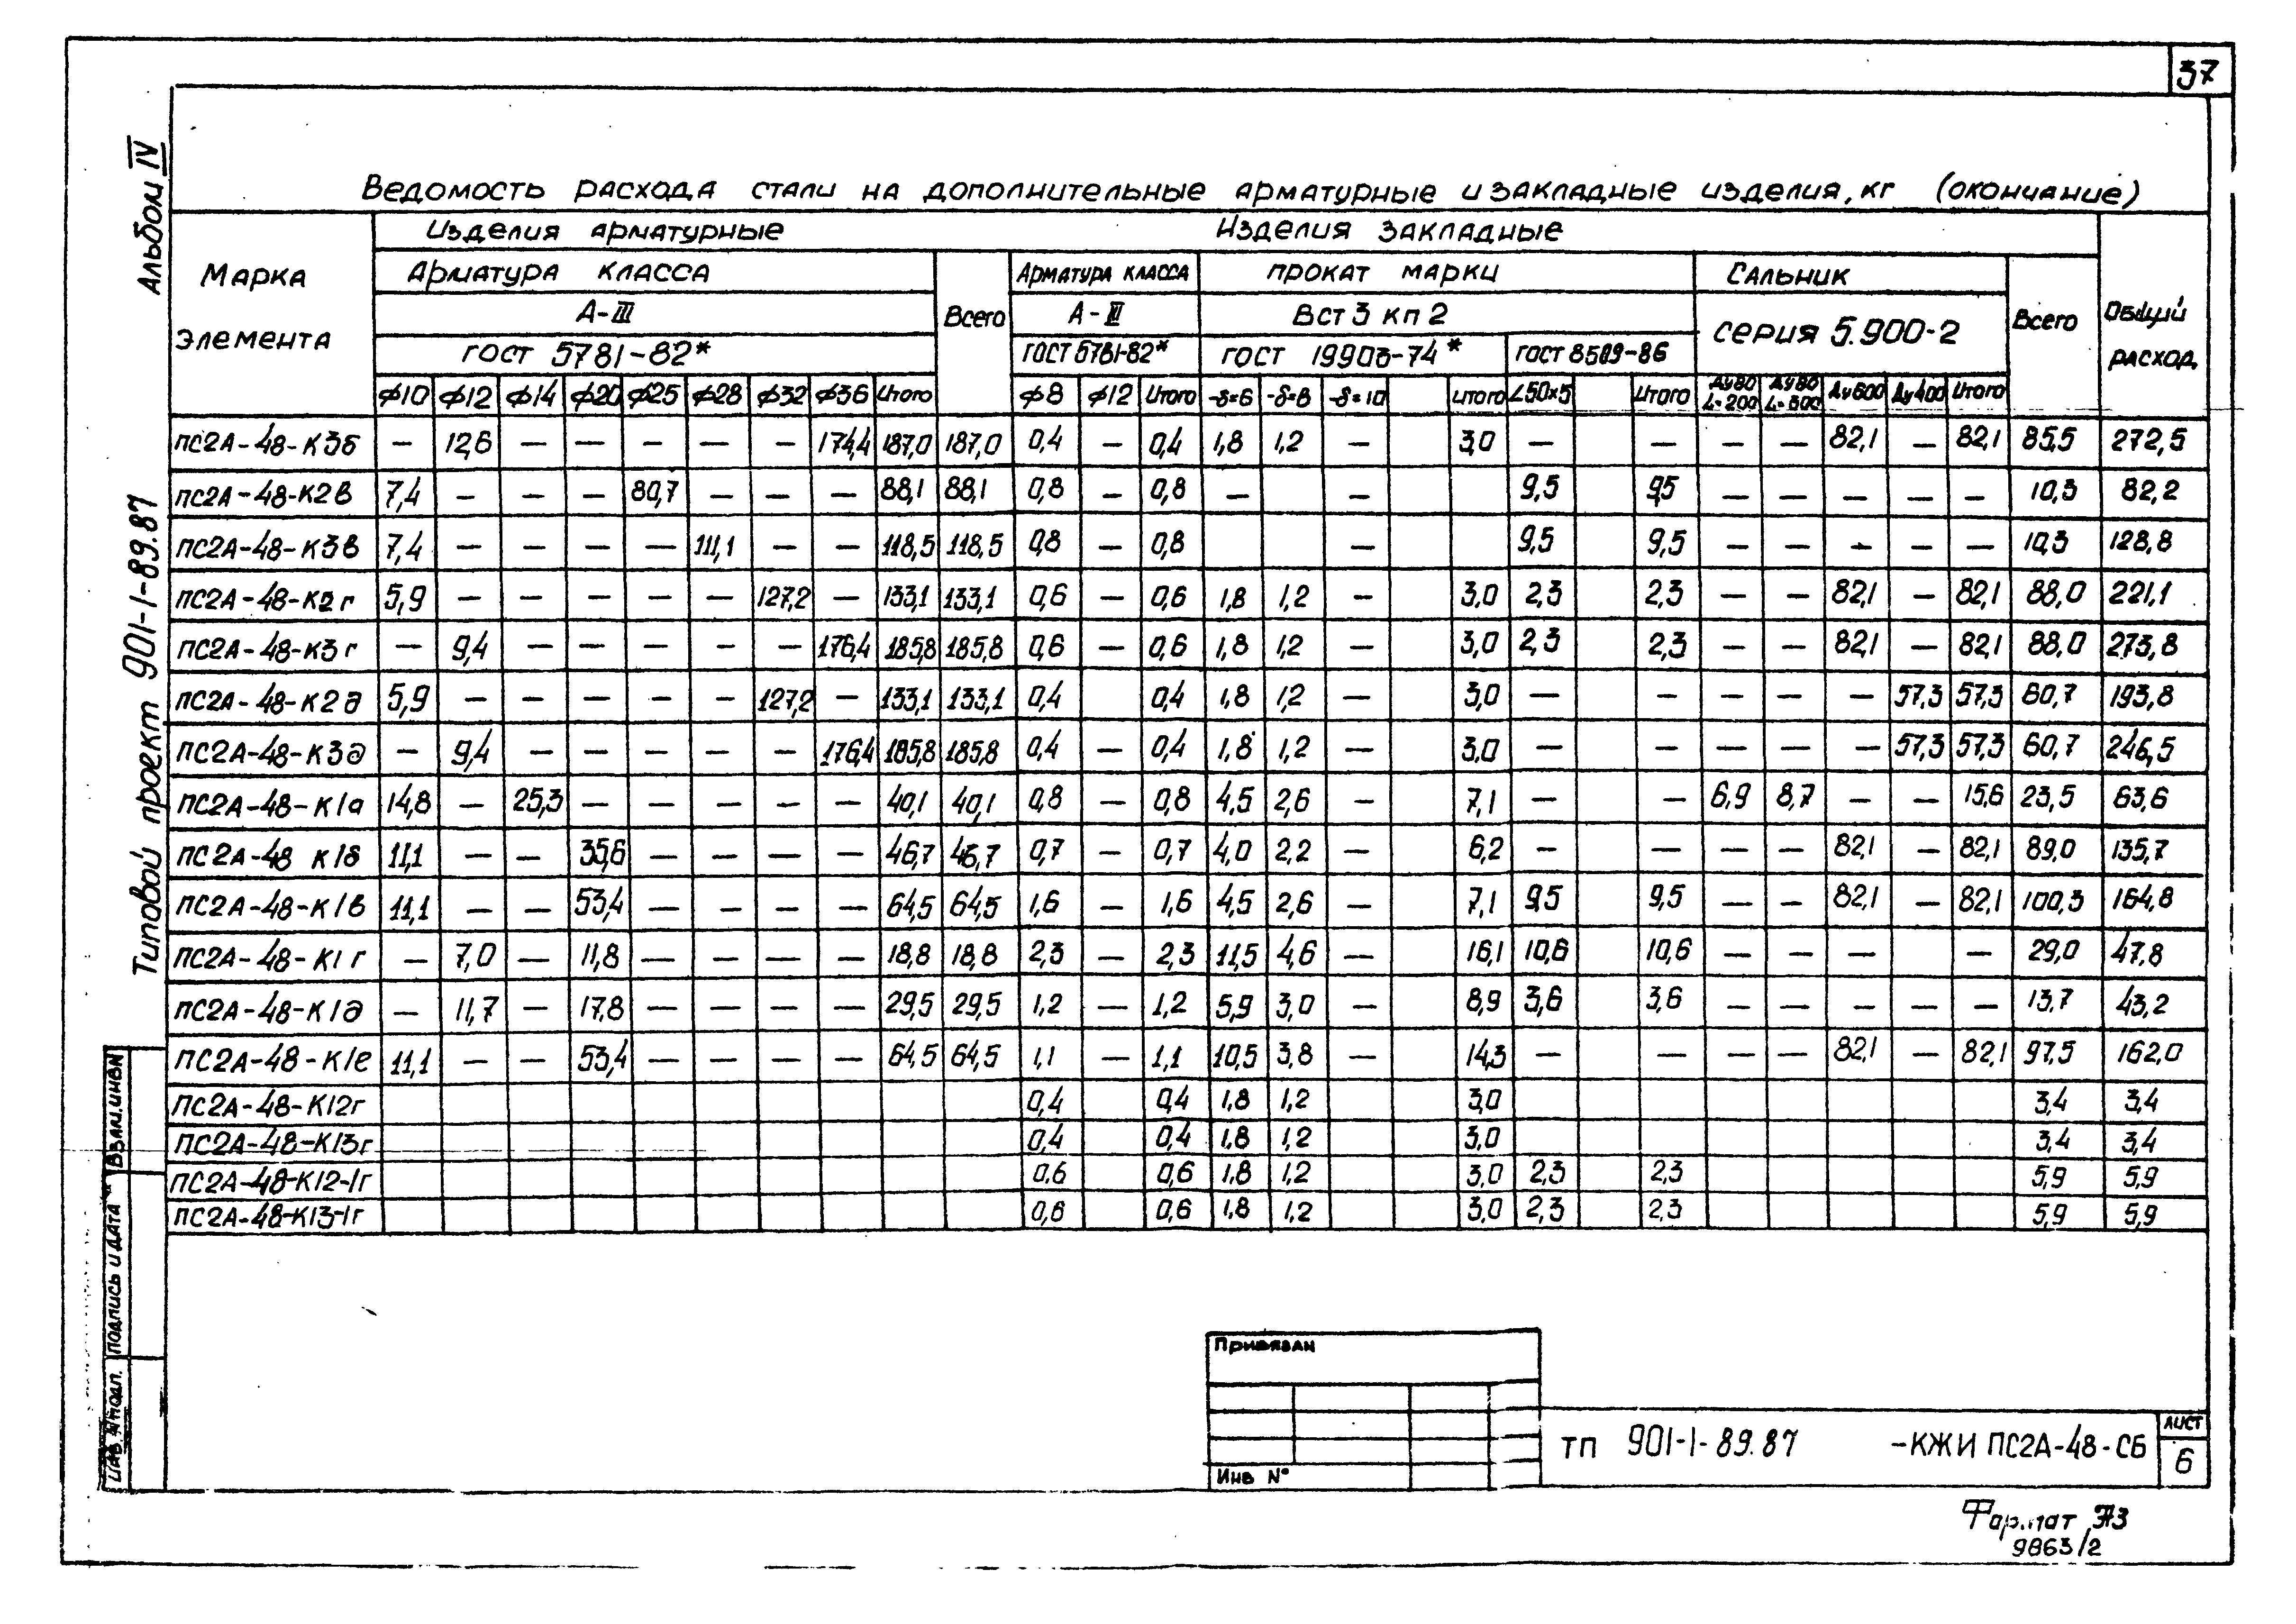 37
Альбом IV
Типовой проект 901-1-89.87
Ведомость расхода стали на дополнительные арматурные и закладные изделия, кг (окончание)
Марка элемента
Изделия арматурные
Изделия закладные
Арматура класса
Всего
Арматура класса
прокат марки
Сальник
Всего
Общий расход
А-III
А-III
Вст 3 кп 2
серия 5.900-2
гост 5781-82*
гост 5781-82*
гост 19903-74*
гост 8509-86
ф10 ф12 ф14 ф20 ф25 ф28 ф32 ф36 Итого ф8 ф12 Итого -δ=6 -δ=8 -δ=10 итого ∠50×5 Итого Ду80 L=200 Ду80 L=300 Ду600 Ду400 Итого
ПС2А-48-К3б — 12,6 — — — — — 174,4 187,0 187,0 0,4 — 0,4 1,8 1,2 — 3,0 — — — — 82,1 — 82,1 85,5 272,5
ПС2А-48-К2в 7,4 — — — 80,7 — — — 88,1 88,1 0,8 — 0,8 — — 9,5 9,5 — — — — — 10,3 82,2
ПС2А-48-К3в 7,4 — — — — 111,1 — — 118,5 118,5 0,8 — 0,8 — 9,5 9,5 — — — — — 10,3 128,8
ПС2А-48-К2г 5,9 — — — — — 127,2 — 133,1 133,1 0,6 — 0,6 1,8 1,2 — 3,0 2,3 2,3 — — 82,1 — 82,1 88,0 221,1
ПС2А-48-К3г — 9,4 — — — — — 176,4 185,8 185,8 0,6 — 0,6 1,8 1,2 — 3,0 2,3 2,3 — — 82,1 — 82,1 88,0 273,8
ПС2А-48-К2д 5,9 — — — — — 127,2 — 133,1 133,1 0,4 0,4 1,8 1,2 — 3,0 — — — — — 57,3 57,3 60,7 193,8
ПС2А-48-К3д — 9,4 — — — — — 176,4 185,8 185,8 0,4 — 0,4 1,8 1,2 — 3,0 — — — — — 57,3 57,3 60,7 246,5
ПС2А-48-К1а 14,8 — 25,3 — — — — — 40,1 40,1 0,8 — 0,8 4,5 2,6 — 7,1 — — 6,9 8,7 — — 15,6 23,5 63,6
ПС2А-48 К1б 11,1 — — 35,6 — — — — 46,7 46,7 0,7 — 0,7 4,0 2,2 — 6,2 — — — — 82,1 — 82,1 89,0 135,7
ПС2А-48-К1в 11,1 — — 53,4 — — — — 64,5 64,5 1,6 — 1,6 4,5 2,6 — 7,1 9,5 9,5 — — 82,1 — 82,1 100,3 164,8
ПС2А-48-К1г — 7,0 — 11,8 — — — — 18,8 18,8 2,3 — 2,3 11,5 4,6 — 16,1 10,6 10,6 — — — — — 29,0 47,8
ПС2А-48-К1д — 11,7 — 17,8 — — — — 29,5 29,5 1,2 — 1,2 5,9 3,0 — 8,9 3,6 3,6 — — — — — 13,7 43,2
ПС2А-48-К1е 11,1 — — 53,4 — — — — 64,5 64,5 1,1 — 1,1 10,5 3,8 — 14,3 — — — — 82,1 — 82,1 97,5 162,0
ПС2А-48-К12г 0,4 0,4 1,8 1,2 3,0 3,4 3,4
ПС2А-48-К13г 0,4 0,4 1,8 1,2 3,0 3,4 3,4
ПС2А-48-К12-1г 0,6 0,6 1,8 1,2 3,0 2,3 2,3 5,9 5,9
ПС2А-48-К13-1г 0,6 0,6 1,8 1,2 3,0 2,3 2,3 5,9 5,9
Взам.инв№
Подпись и дата
Инв.№ подл.
Привязан
Инв №
ТП 901-1-89.87 -КЖИ ПС2А-48-СБ
Лист
6
Формат А3
9863/2